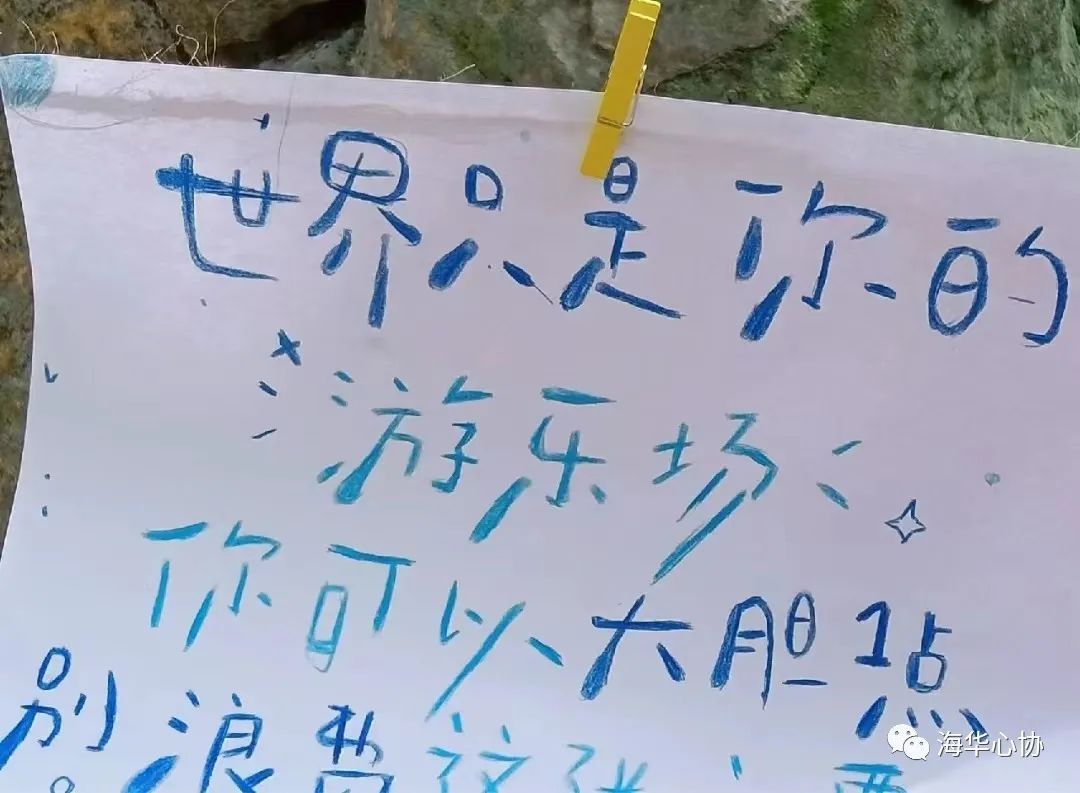 世界只是你的
游乐场
你可以大胆1点
别浪费这张
海华心协